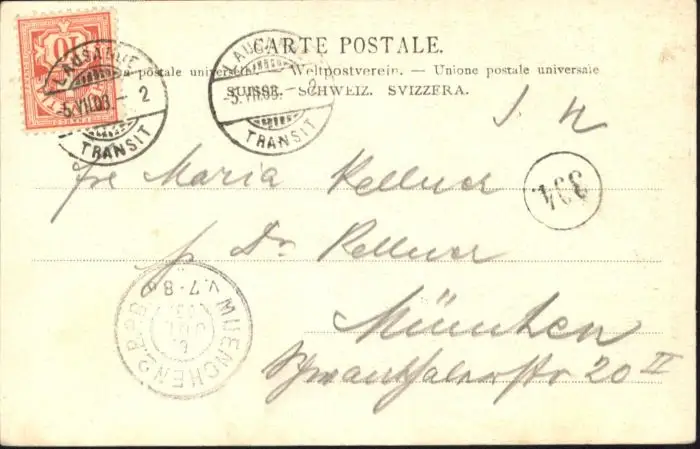 CARTE POSTALE.
postale universelle. — Weltpostverein. — Unione postale universale
SUISSE. SCHWEIZ. SVIZZERA.
10
LAUSANNE
5.VII.03.– 2
TRANSIT
LAUSANNE
5.VII.03.– 2
TRANSIT
334
Maria Kellner
p Dr. Kellner
München
20 II
MUENCHEN 2.B.P.
V.7-8
JUL